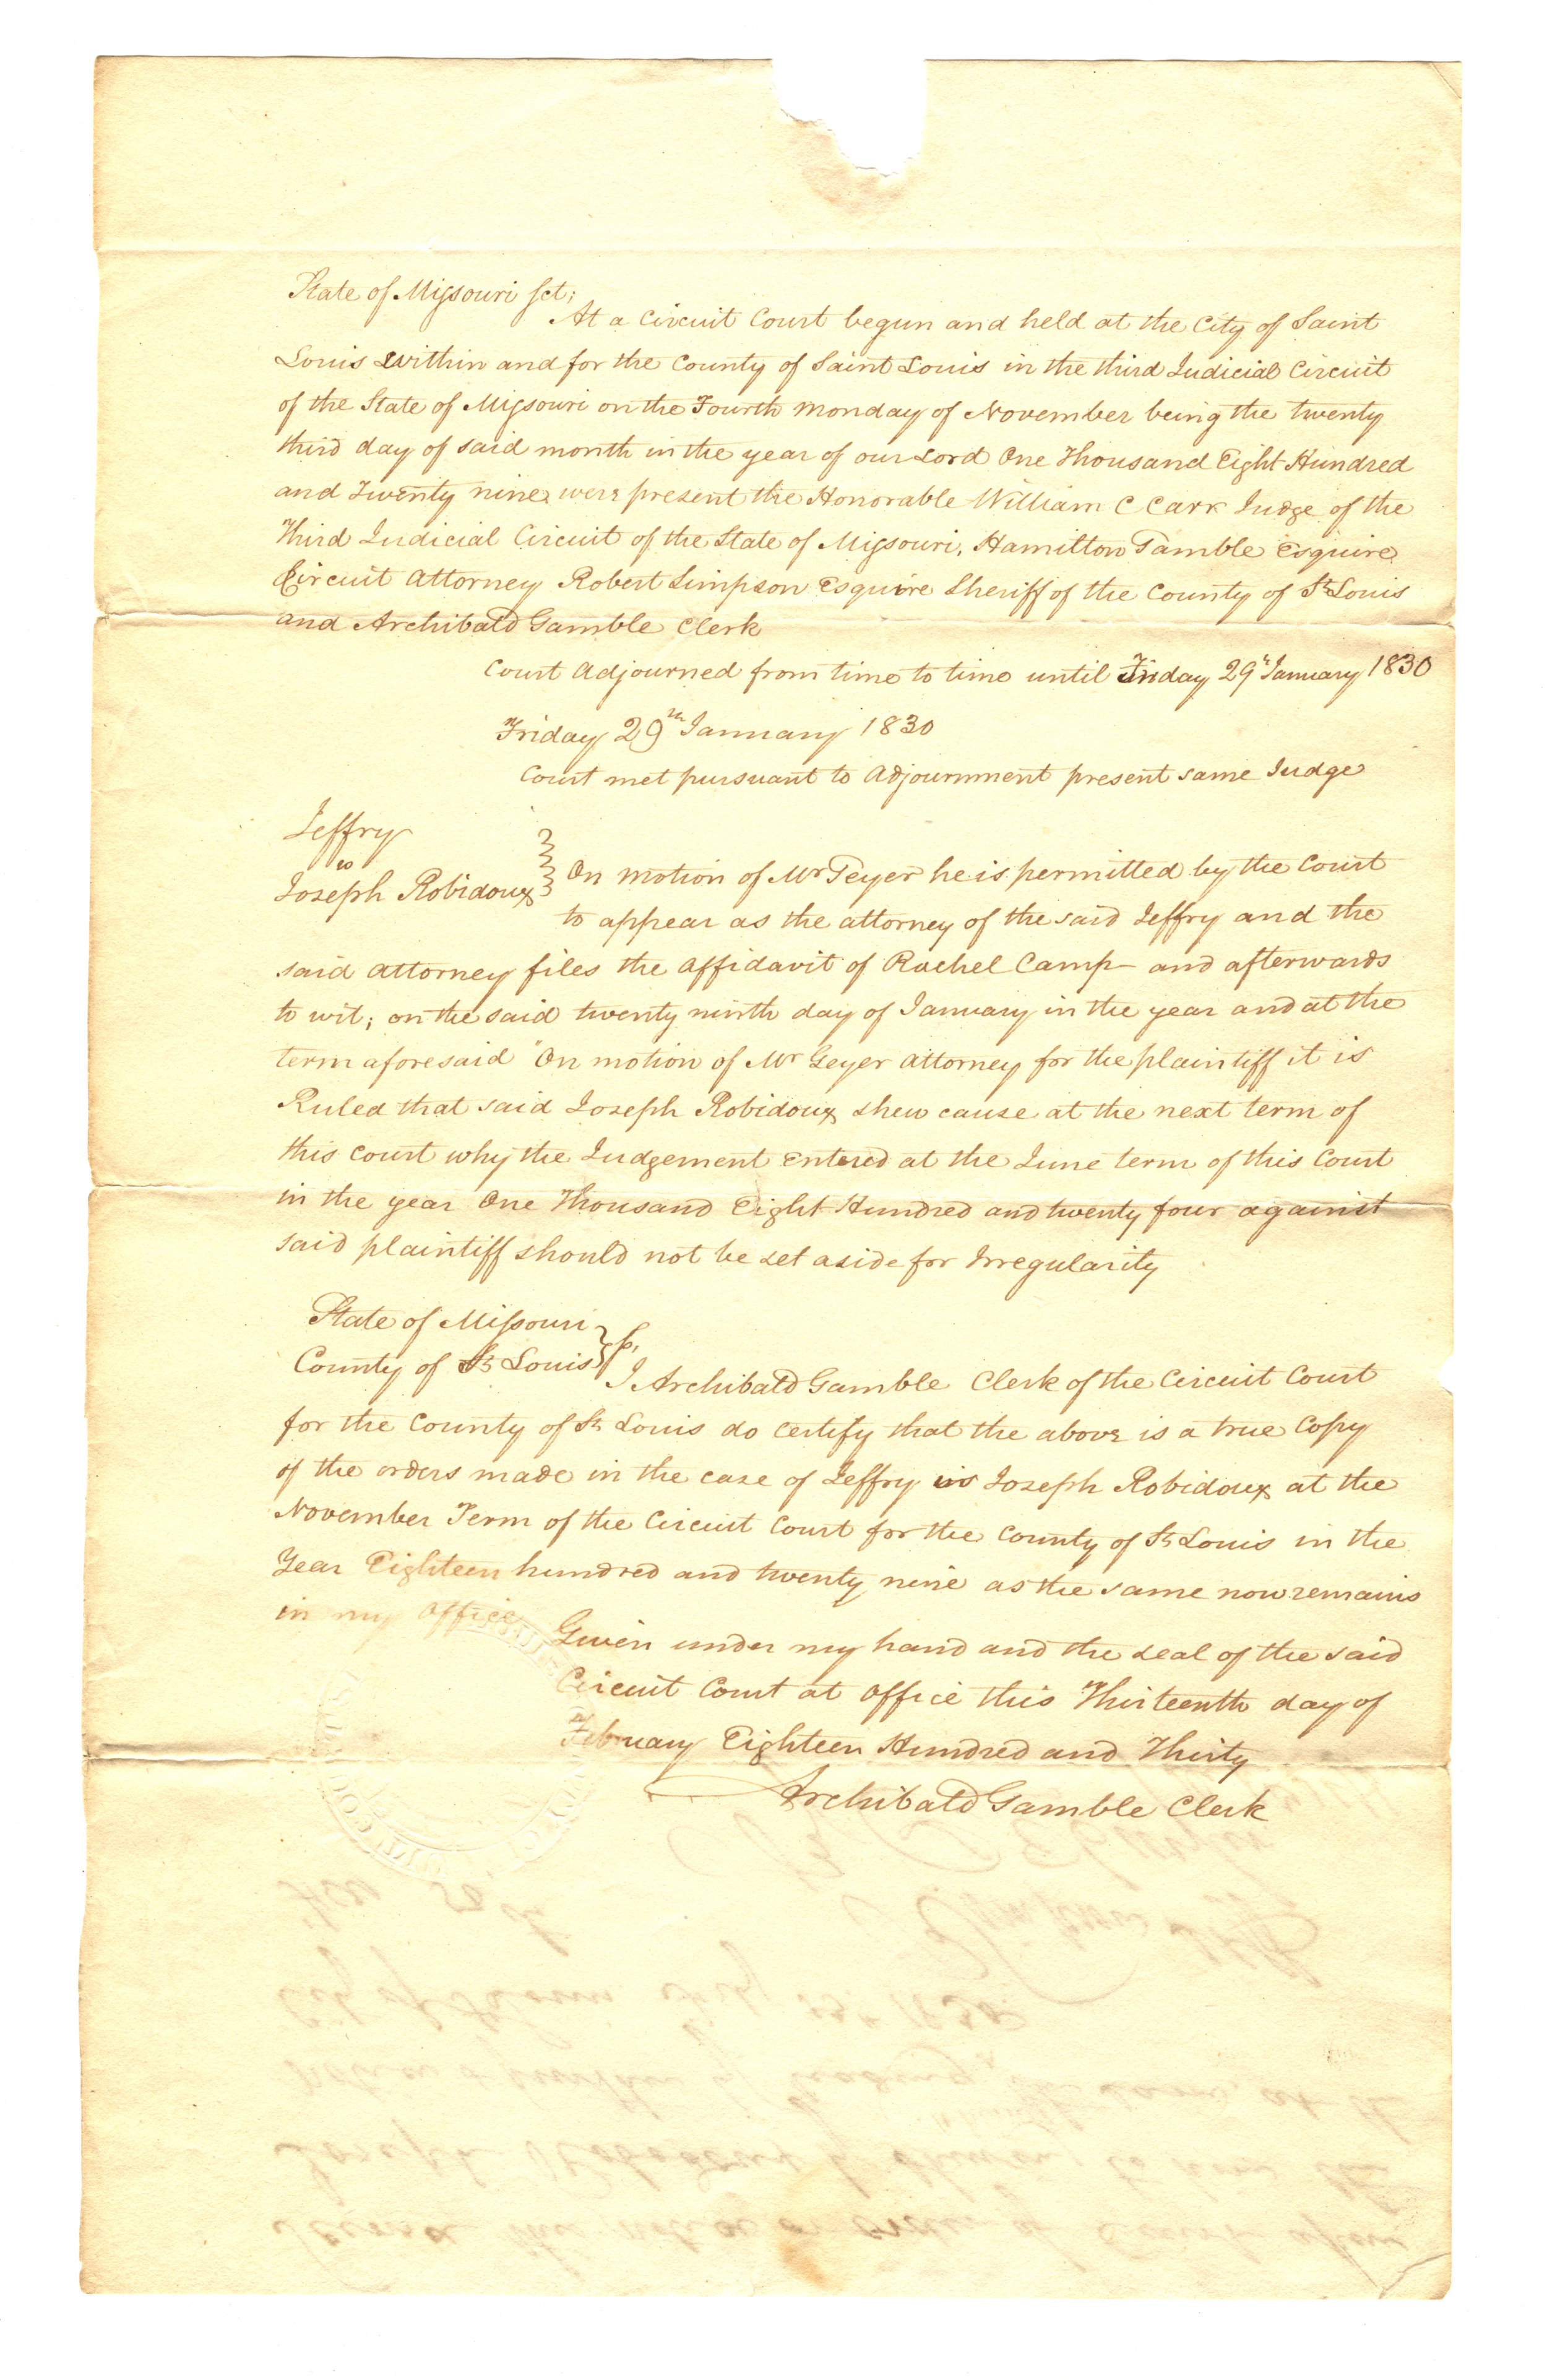 State of Missouri sct;
At a Circuit Court begun and held at the City of Saint
Louis within and for the County of Saint Louis in the third Judicial Circuit
of the State of Missouri on the Fourth Monday of November being the twenty
third day of said month in the year of our Lord One Thousand Eight Hundred
and Twenty nine, were present the Honorable William C Carr Judge of the
Third Judicial Circuit of the State of Missouri, Hamilton Gamble Esquire
Circuit Attorney Robert Simpson Esquire Sheriff of the County of St Louis
and Archibald Gamble Clerk
Court Adjourned from time to time until Friday 29th January 1830
Friday 29th January 1830
Court met pursuant to Adjournment present same Judge
Jeffry
vs
Joseph Robidoux
On motion of Mr Geyer he is permitted by the Court
to appear as the attorney of the said Jeffry and the
said attorney files the affidavit of Rachel Camp and afterwards
to wit; on the said twenty ninth day of January in the year and at the
term aforesaid "On motion of Mr Geyer attorney for the plaintiff it is
Ruled that said Joseph Robidoux shew cause at the next term of
this court why the Judgement entered at the June term of this Court
in the year One Thousand Eight Hundred and twenty four against
said plaintiff should not be set aside for Irregularity
State of Missouri
County of St Louis
I Archibald Gamble Clerk of the Circuit Court
for the County of St Louis do certify that the above is a true Copy
of the orders made in the case of Jeffry vs Joseph Robidoux at the
November Term of the Circuit Court for the County of St Louis in the
Year Eighteen hundred and twenty nine as the same now remains
in my office
Given under my hand and the seal of the said
Circuit Court at office this Thirteenth day of
February Eighteen Hundred and Thirty
Archibald Gamble Clerk